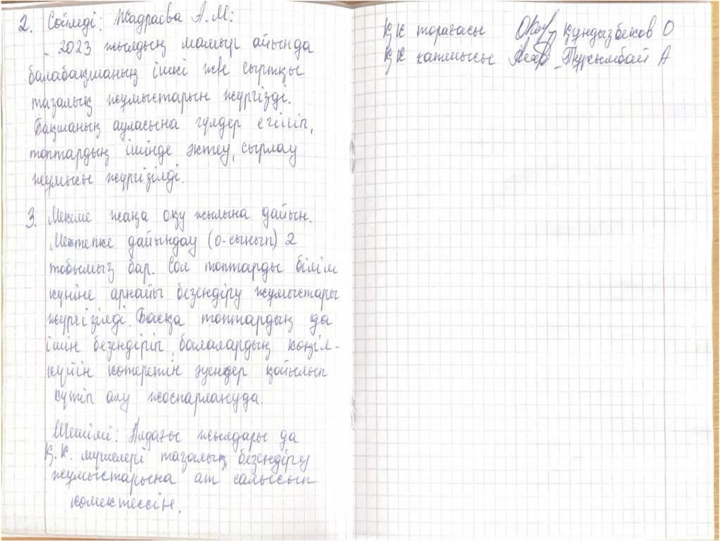 2. Сөйледі: Жадраева А.М:
- 2023 жылдың мамыр айында
балабақшаның ішкі және сыртқы
тазалық жұмыстарын жүргізді.
Бақшаның ауласына гүлдер егіліп,
топтардың ішінде әктеу, сырлау
жұмысы жүргізілді.
3. Мекеме жаңа оқу жылына дайын.
Мектепке дайындау (0-сынып) 2
тобымыз бар. Сол топтарды білім
күніне арнайы безендіру жұмыстары
жүргізілді. Басқа топтардың да
ішін безендіріп, балалардың көңіл-
күйін көтеретін әуендер қойылып
күтіп алу жоспарлануда.
Шешімі: Алдағы жылдары да
Қ.К. мүшелері тазалық, безендіру
жұмыстарына ат салысып
көмектессін.
ҚК төрағасы Құндызбеков О
ҚК хатшысы Тұрсымбай А